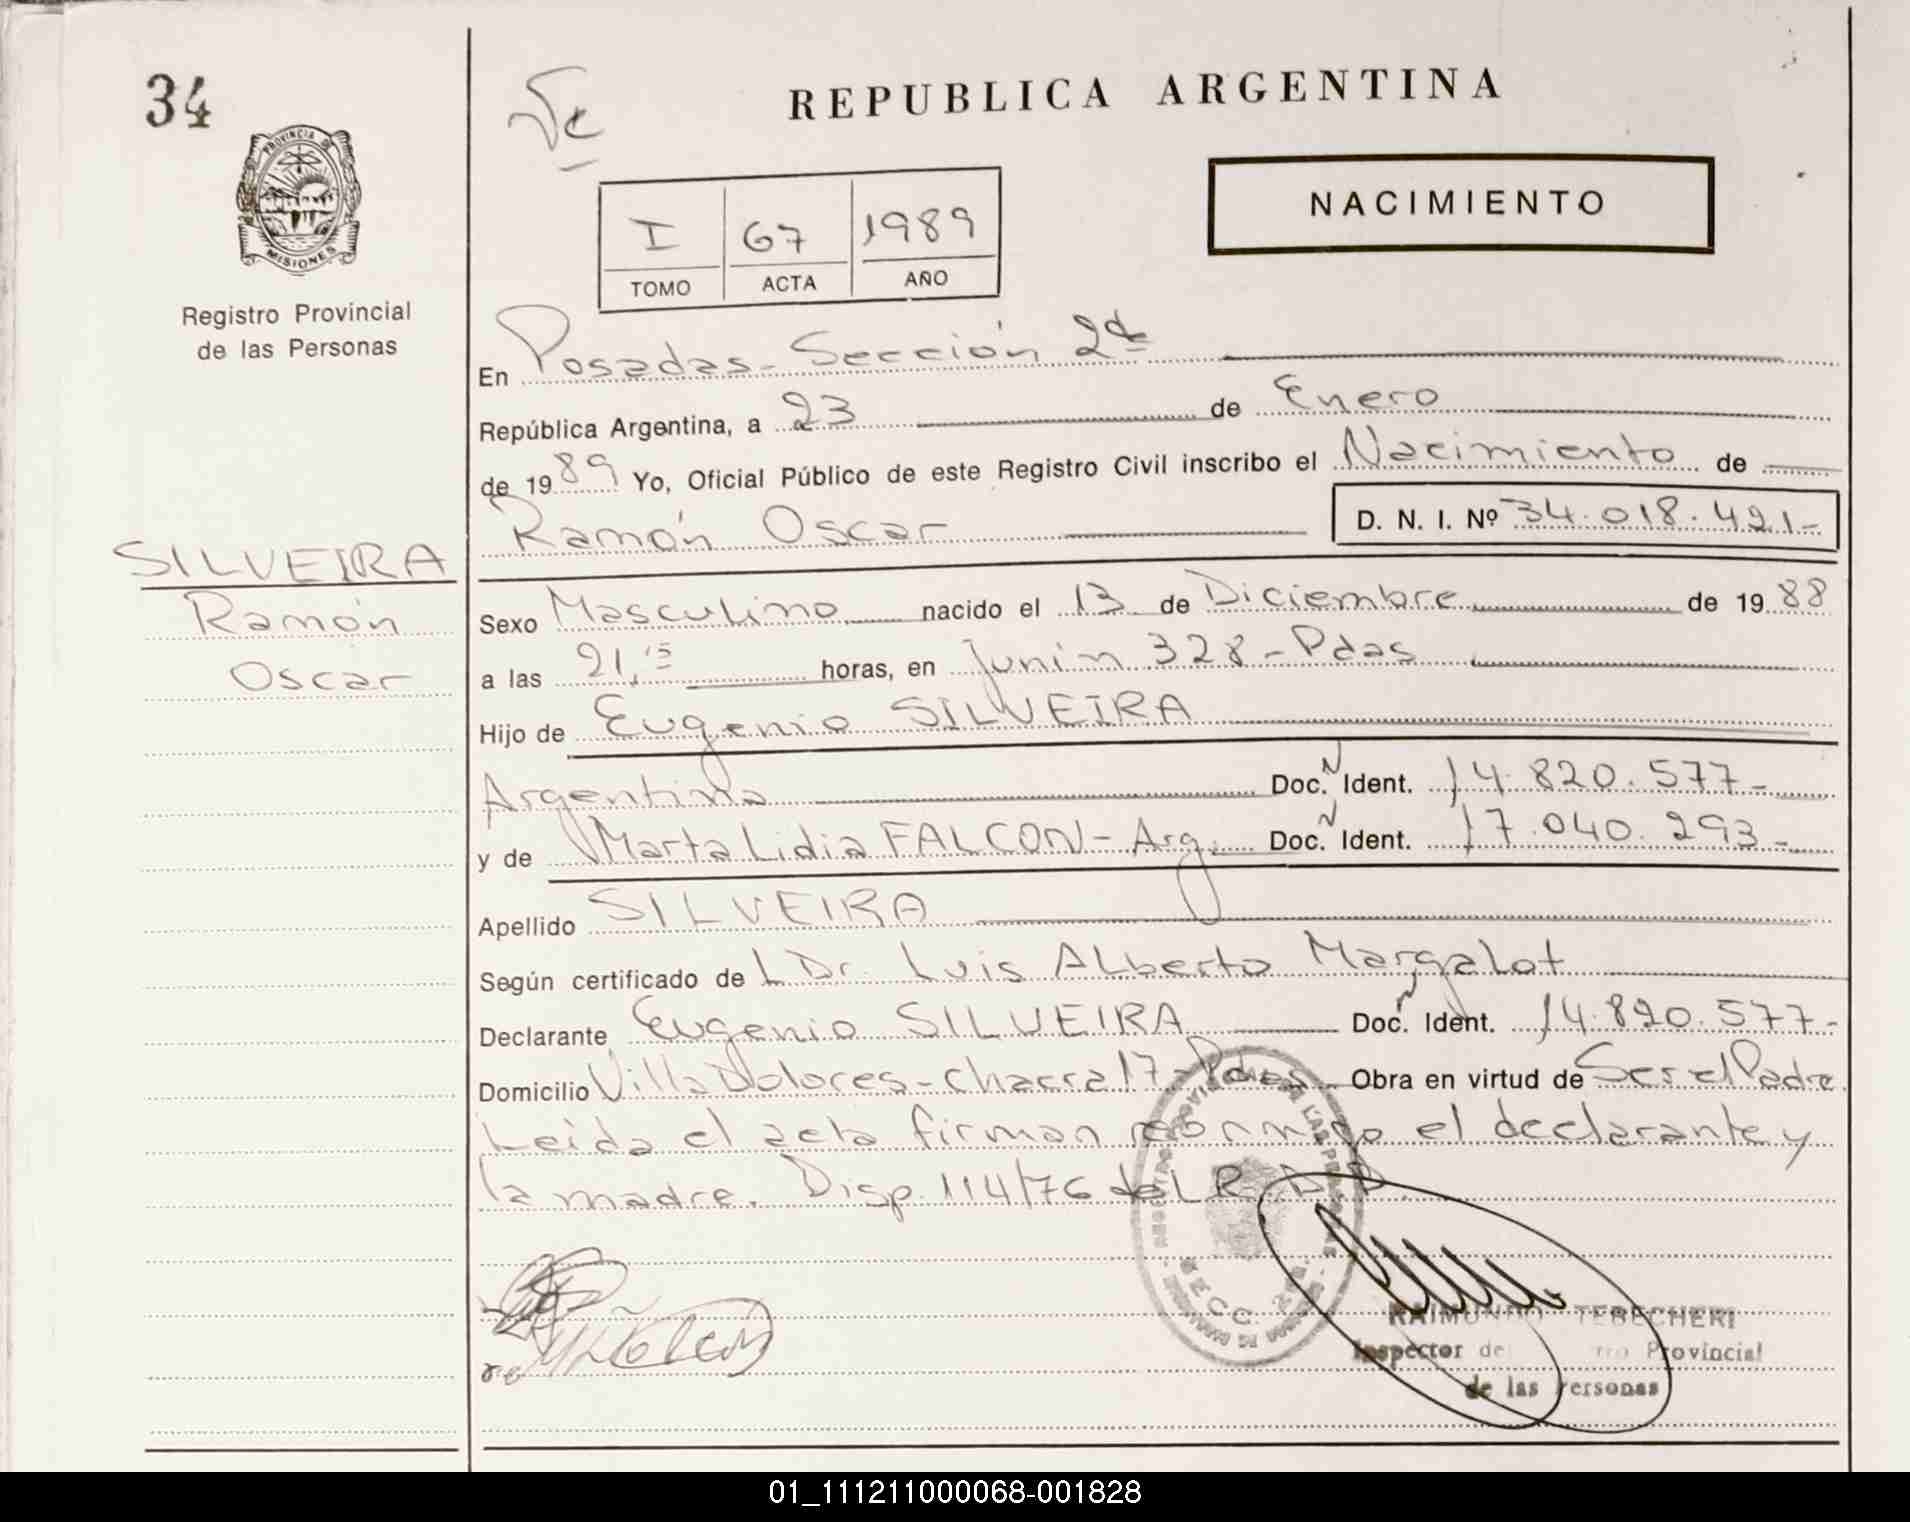 34
PROVINCIA DE
MISIONES
Registro Provincial
de las Personas
SILVEIRA
Ramón
Oscar
REPUBLICA ARGENTINA
NACIMIENTO
I 67 1989
TOMO ACTA AÑO
En Posadas - Sección 2da
República Argentina, a 23 de Enero
de 1989 Yo, Oficial Público de este Registro Civil inscribo el Nacimiento de
Ramón Oscar D. N. I. Nº 34.018.421-
Sexo Masculino nacido el 13 de Diciembre de 1988
a las 21,15 horas, en Junín 328 - Pdas
Hijo de Eugenio SILVEIRA
Argentina Doc. N Ident. 14.820.577-
y de Marta Lidia FALCON - Arg. Doc. N Ident. 17.040.293-
Apellido SILVEIRA
Según certificado de L Dr. Luis ALberto Margalot
Declarante Eugenio SILVEIRA Doc. N Ident. 14.820.577-
Domicilio Villa Dolores - Chacra 17 - Pdas Obra en virtud de Ser el Padre
Leida el acta firman conmigo el declarante y
la madre. Disp. 114/76 del R. D. P.
SECC. 2da
RAIMUNDO TEBECHERI
Inspector de Provincial
de las Personas
01_111211000068-001828